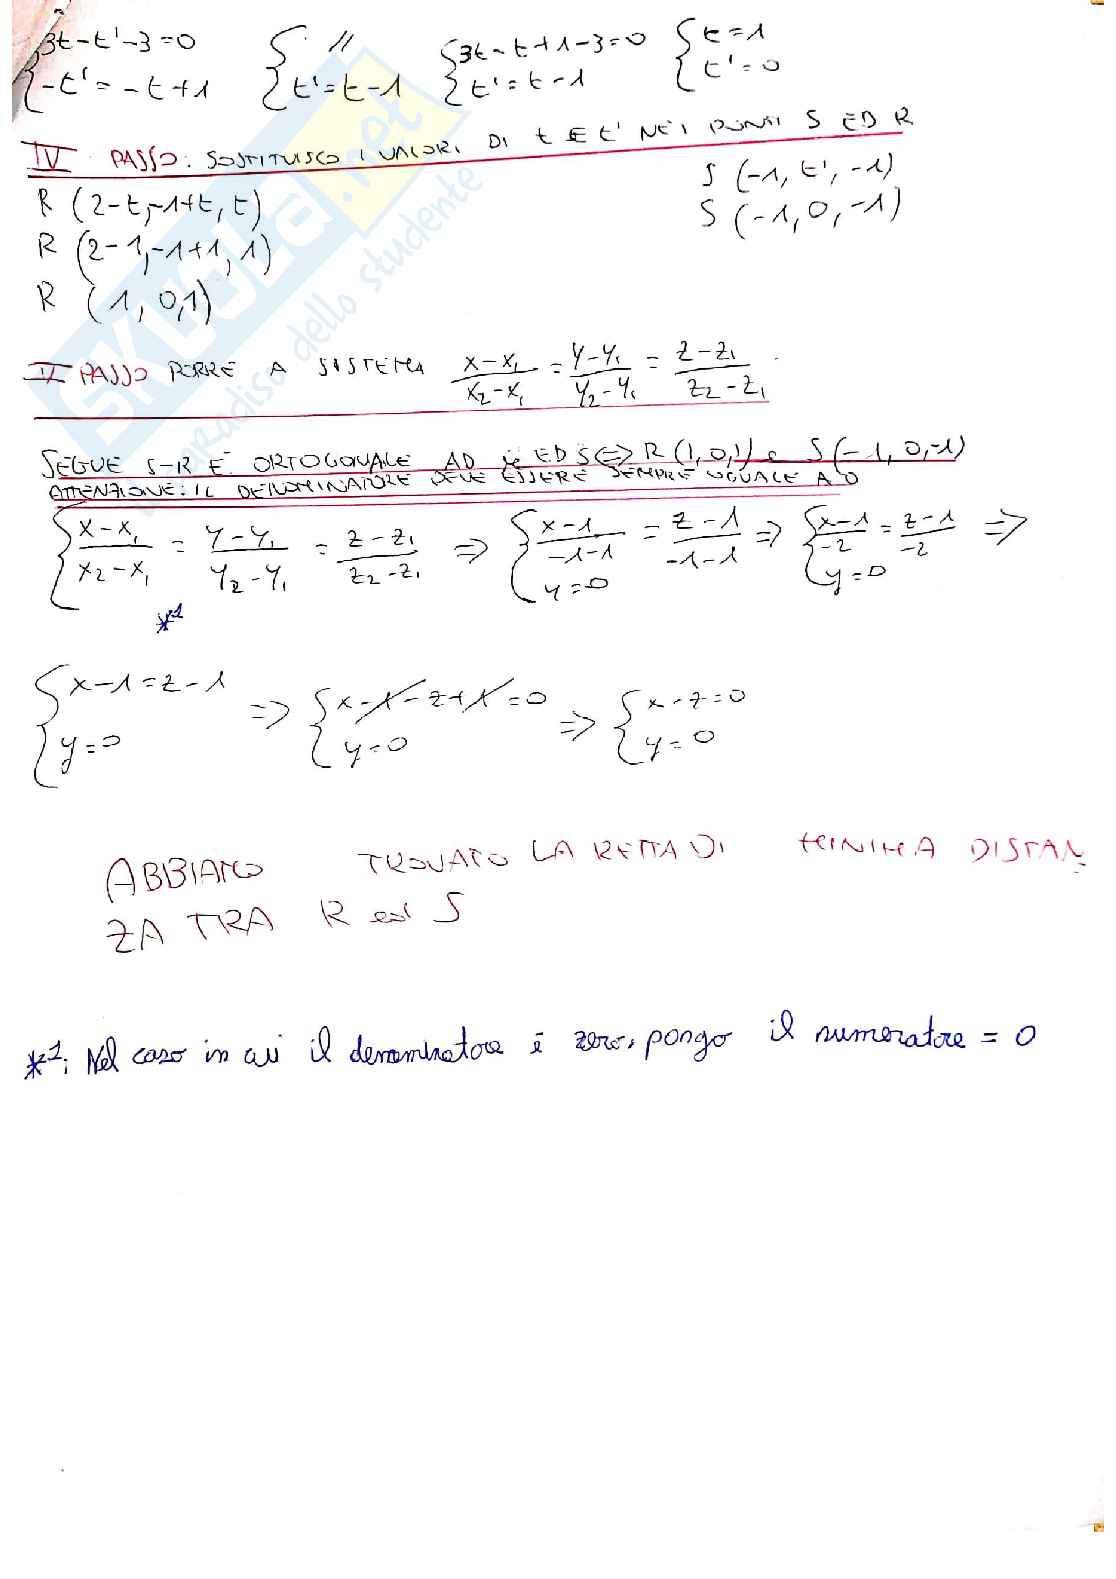 {3t-t'-3=0 {// {3t-t+1-3=0 {t=1
{-t'=-t+1 {t'=t-1 {t'=t-1 {t'=0
IV PASSO: SOSTITUISCO I VALORI DI t E t' NEI PUNTI S ED R
R (2-t,-1+t,t) S (-1,t',-1)
R (2-1,-1+1,1) S (-1,0,-1)
R (1,0,1)
V PASSO PORRE A SISTEMA (x-x₁)/(x₂-x₁) = (y-y₁)/(y₂-y₁) = (z-z₁)/(z₂-z₁)
SEGUE S-R E' ORTOGONALE AD r ED S <=> R (1,0,1) e S (-1,0,-1)
ATTENZIONE: IL DENOMINATORE DEVE ESSERE SEMPRE UGUALE A 0
{(x-x₁)/(x₂-x₁) = (y-y₁)/(y₂-y₁) = (z-z₁)/(z₂-z₁) => {(x-1)/(-1-1) = (z-1)/(-1-1) => {(x-1)/-2 = (z-1)/-2 =>
{y=0 {y=0
*¹
{x-1=z-1 => {x-1-z+1=0 => {x-z=0
{y=0 {y=0 {y=0
ABBIAMO TROVATO LA RETTA DI MINIMA DISTAN
ZA TRA R ed S
*¹: Nel caso in cui il denominatore è zero, pongo il numeratore = 0
SKUOLA.net
paradiso dello studente